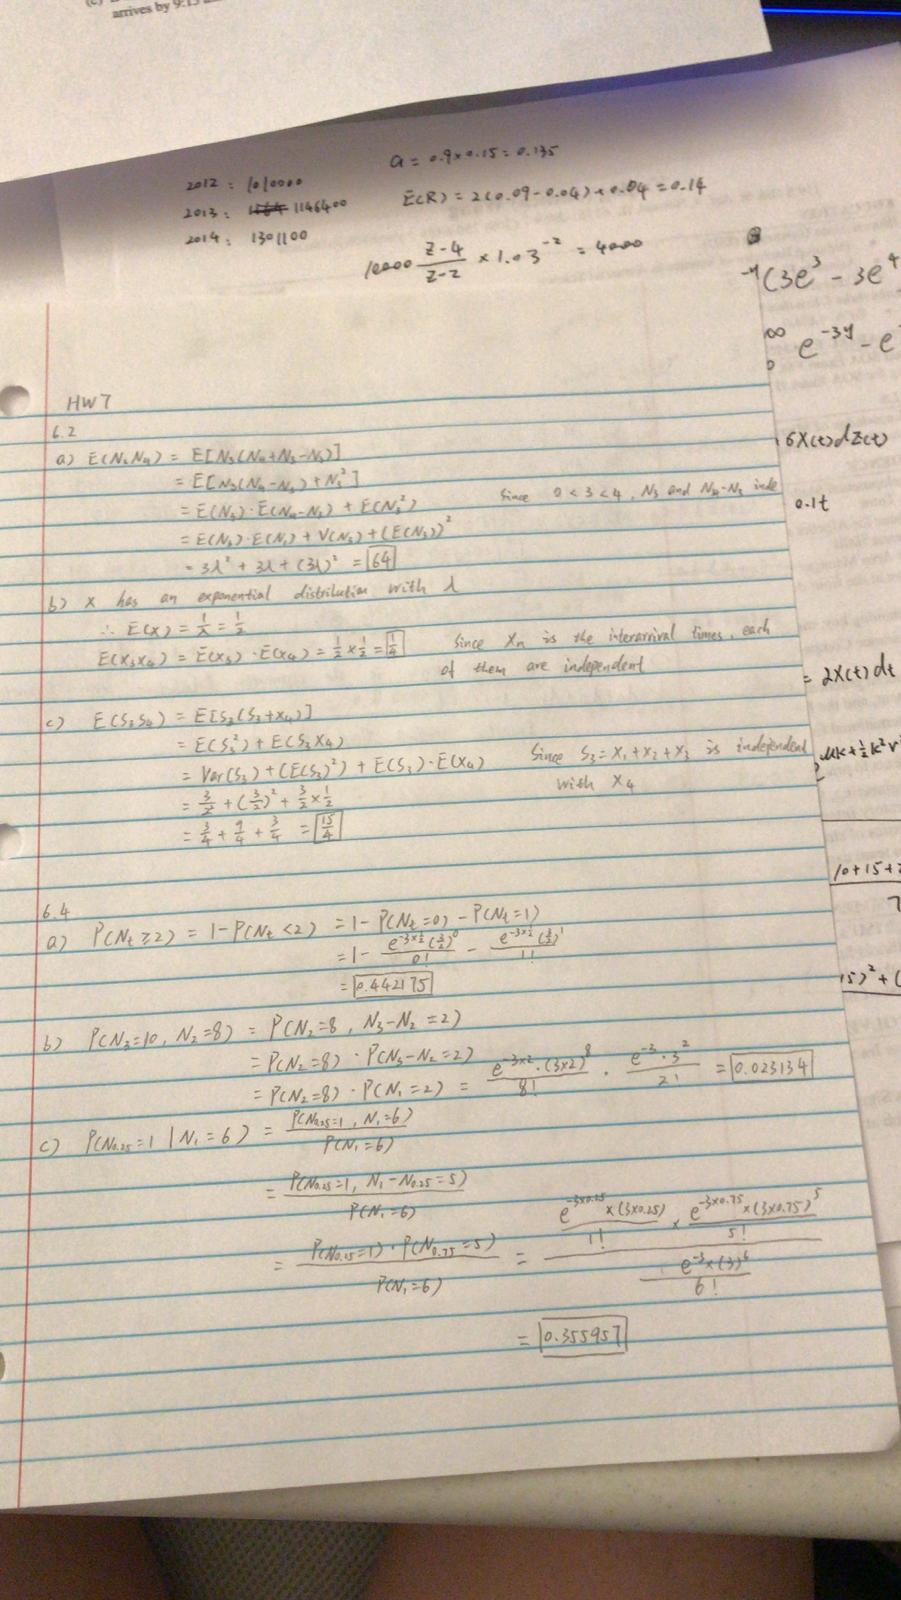 arrives by 9:15
2012 : 1010000
2013 : 1146400
2014 : 1301100
a = 0.9×0.15 = 0.135
E(R) = 2(0.09-0.04)+0.04 = 0.14
10000 \frac{Z-4}{Z-2} × 1.03^{-2} = 4000
(3e^3 - 3e^4
e^{-3y} - e
6X(t)dZ(t)
0.1t
= 2X(t)dt
uk+½k²v²
10+15+
15)²+(
HW7
6.2
a) E(N₃N₄) = E[N₃(N₄+N₃-N₃)]
= E[N₃(N₄-N₃)+N₃²]
= E(N₃)·E(N₄-N₃) + E(N₃²) Since 0<3<4, N₃ and N₄-N₃ inde
= E(N₃)·E(N₁) + V(N₃) + (E(N₃))²
= 3λ² + 3λ + (3λ)² = 64
b) X has an exponential distribution with λ
∴ E(X) = 1/λ = 1/2
E(X₃X₄) = E(X₃)·E(X₄) = 1/2 × 1/2 = 1/4 Since Xn is the interarrival times, each
of them are independent
c) E(S₃S₄) = E[S₃(S₃+X₄)]
= E(S₃²) + E(S₃X₄)
= Var(S₃) + (E(S₃)²) + E(S₃)·E(X₄) Since S₃=X₁+X₂+X₃ is independent
with X₄
= 3/2² + (3/2)² + 3/2 × 1/2
= 3/4 + 9/4 + 3/4 = 15/4
6.4
a) P(Nt≥2) = 1-P(Nt<2) = 1-P(Nt=0)-P(Nt=1)
= 1 - \frac{e^{-3×½}(3/2)^0}{0!} - \frac{e^{-3×½}(3/2)^1}{1!}
= 0.442175
b) P(N₃=10, N₂=8) = P(N₂=8, N₃-N₂=2)
= P(N₂=8)·P(N₃-N₂=2)
= P(N₂=8)·P(N₁=2) = \frac{e^{-3×2}·(3×2)^8}{8!} · \frac{e^{-3}·3^2}{2!} = 0.023134
c) P(N0.25=1 | N₁=6) = \frac{P(N0.25=1, N₁=6)}{P(N₁=6)}
= \frac{P(N0.25=1, N₁-N0.25=5)}{P(N₁=6)}
= \frac{P(N0.25=1)·P(N0.75=5)}{P(N₁=6)} = \frac{\frac{e^{-3×0.25}×(3×0.25)}{1!} × \frac{e^{-3×0.75}×(3×0.75)^5}{5!}}{\frac{e^{-3}×(3)^6}{6!}}
= 0.355957